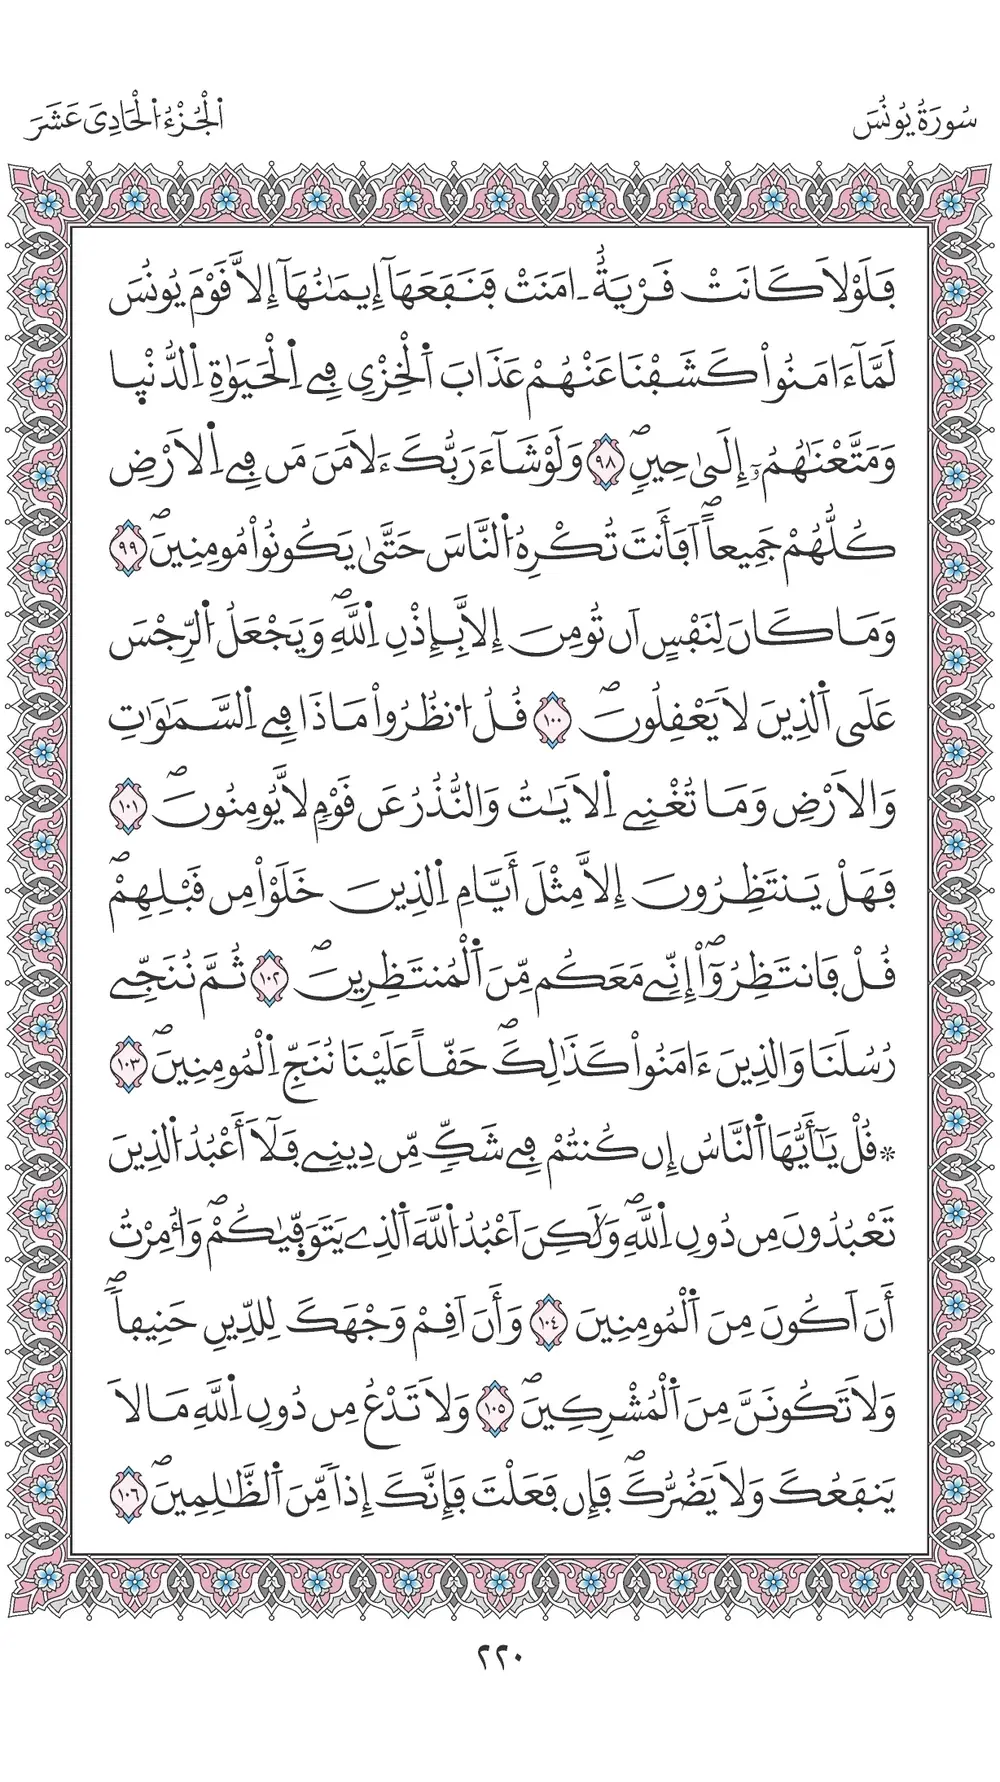 سُورَةُ يُونُسَ
اَ۬لْجُزْءُ اُ۬لْحَادِي عَشَرَ
فَلَوْلَا كَانَتْ قَرْيَةٌ ـ اٰمَنَتْ فَنَفَعَهَآ إِيمَٰنُهَآ إِلَّا قَوْمَ يُونُسَ
لَمَّآ ءَامَنُواْ كَشَفْنَا عَنْهُمْ عَذَابَ اَ۬لْخِزْيِ فِے اِ۬لْحَيَوٰةِ اِ۬لدُّنْي۪ا
وَمَتَّعْنَٰهُمُۥٓ إِلَىٰ حِينٖۖ ٩٨ وَلَوْ شَآءَ رَبُّكَ ءَلَامَنَ مَن فِے اِ۬لَارْضِ
كُلُّهُمْ جَمِيعاًۖ اَفَأَنتَ تُكْرِهُ اُ۬لنَّاسَ حَتَّىٰ يَكُونُواْ مُومِنِينَۖ ٩٩
وَمَا كَانَ لِنَفْسٍ اَن تُومِنَ إِلَّا بِإِذْنِ اِ۬للَّهِۖ وَيَجْعَلُ اُ۬لرِّجْسَ
عَلَى اَ۬لذِينَ لَا يَعْقِلُونَۖ ١٠٠ قُلُ اُ۟نظُرُواْ مَاذَا فِے اِ۬لسَّمَٰوَٰتِ
وَالَارْضِ وَمَا تُغْنِے اِ۬لَايَٰتُ وَالنُّذُرُ عَن قَوْمٖ لَّا يُومِنُونَۖ ١٠١
فَهَلْ يَنتَظِرُونَ إِلَّا مِثْلَ أَيَّامِ اِ۬لذِينَ خَلَوْاْ مِن قَبْلِهِمْۖ
قُلْ فَانتَظِرُوٓاْۖ إِنِّے مَعَكُم مِّنَ اَ۬لْمُنتَظِرِينَۖ ١٠٢ ثُمَّ نُنَجِّے
رُسُلَنَا وَالذِينَ ءَامَنُواْ كَذَٰلِكَۖ حَقّاً عَلَيْنَا نُنَجِّ اِ۬لْمُومِنِينَۖ ١٠٣
* قُلْ يَٰٓأَيُّهَا اَ۬لنَّاسُ إِن كُنتُمْ فِے شَكّٖ مِّن دِينِے فَلَآ أَعْبُدُ اُ۬لذِينَ
تَعْبُدُونَ مِن دُونِ اِ۬للَّهِۖ وَلَٰكِنَ اَعْبُدُ اُ۬للَّهَ اَ۬لذِے يَتَوَفّ۪يٰكُمْۖ وَأُمِرْتُ
أَنَ اَكُونَ مِنَ اَ۬لْمُومِنِينَ ١٠٤ وَأَنَ اَقِمْ وَجْهَكَ لِلدِّينِ حَنِيفاًۖ
وَلَا تَكُونَنَّ مِنَ اَ۬لْمُشْرِكِينَۖ ١٠٥ وَلَا تَدْعُ مِن دُونِ اِ۬للَّهِ مَا لَا
يَنفَعُكَ وَلَا يَضُرُّكَۖ فَإِن فَعَلْتَ فَإِنَّكَ إِذاٗ مِّنَ اَ۬لظَّٰلِمِينَۖ ١٠٦
٢٢٠